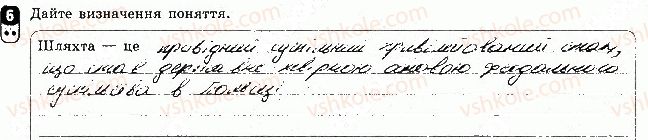 6 Дайте визначення поняття.
Шляхта — це провідний суспільний привілейований стан,
що став державне твірною основою феодального
суспільства в Польщі